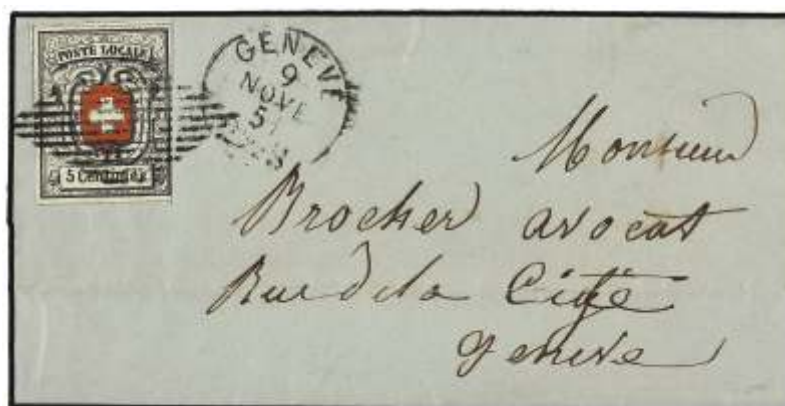 POSTE LOCALE
5 Centimes
GENEVE
9
NOVE
51
Monsieur
Brocher avocat
Rue de la Cité
Genève